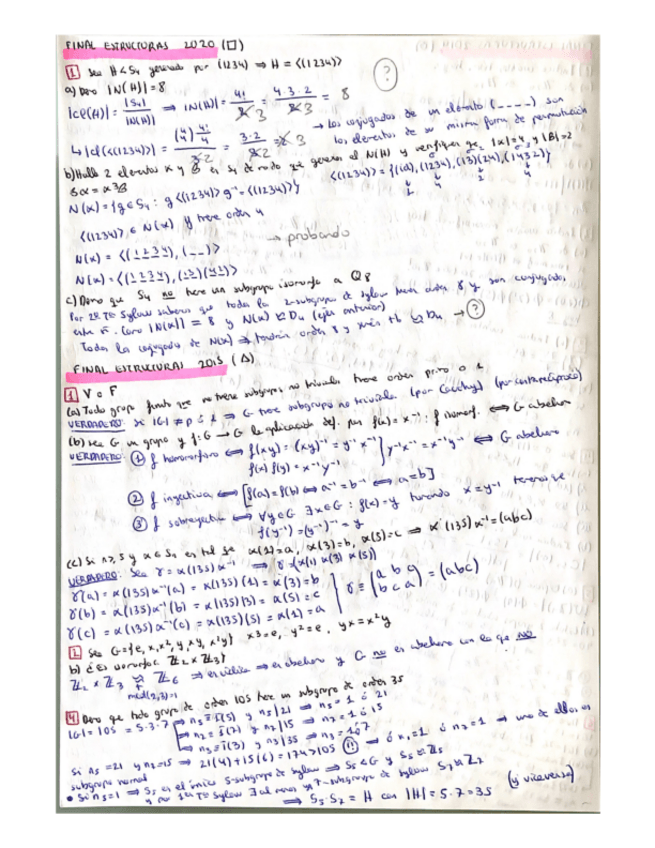 FINAL ESTRUCTURAS 2020 (□)
1 Sea H < S₄ generado por (1234) ⇒ H = <(1234)>
a) Demo |N(H)| = 8
|cl(H)| = |S₄| / |N(H)| ⇒ |N(H)| = 4! / 3 = 4·3·2 / 3 = 8
?
→ Los conjugados de un elemento (_ _ _ _) son
los elementos de su misma forma de permutación
b) Halla 2 elementos α y β en S₄ de modo que generen al N(H) y verifiquen que |α|=4 y |β|=2
βα = α³β
<(1234)> = {(id), (1234), (13)(24), (1432)}
N(α) = {g ∈ S₄ : g<(1234)>g⁻¹ = <(1234)>}
<(1234)> ∈ N(α) y tiene orden 4
→ probando
N(α) = <(1234), (_ _)>
c) Demo que S₄ no tiene un subgrupo isomorfo a Q8
Por 2º Tº Sylow sabemos que todos los 2-subgrupos de Sylow tienen orden 8 y son conjugados
entre sí. Como |N(α)| = 8 y N(α) ≅ D₄ (ejer anterior)
?
FINAL ESTRUCTURAS 2015 (Δ)
1 V o F
(a) Todo grupo finito que no tiene subgrupos no triviales tiene orden primo o 1.
VERDADERO: Si |G| ≠ p ó 1 ⇒ G tiene subgrupo no trivial (por Cauchy) (por contrarrecíproco)
(b) Sea G un grupo y f: G → G la aplicación def. por f(x) = x⁻¹ : f isomorf. ⇔ G abeliano
VERDADERO: ① f homomorfismo ⇔ f(xy) = (xy)⁻¹ = y⁻¹x⁻¹
f(x)f(y) = x⁻¹y⁻¹ } y⁻¹x⁻¹ = x⁻¹y⁻¹ ⇔ G abeliano
② f inyectiva ⇔ [f(a) = f(b) ⇔ a⁻¹ = b⁻¹ ⇔ a = b]
③ f sobreyectiva ⇔ ∀y∈G ∃x∈G : f(x) = y tomando x = y⁻¹ tenemos que
f(y⁻¹) = (y⁻¹)⁻¹ = y
(c) Si n≥5 y α∈Sₙ es tal que α(1)=a, α(3)=b, α(5)=c ⇒ α(135)α⁻¹ = (abc)
VERDADERO: Sea γ = α(135)α⁻¹ ⇒ γ = (α(1) α(3) α(5))
γ(a) = α(135)α⁻¹(a) = α(135)(1) = α(3) = b
γ(b) = α(135)α⁻¹(b) = α(135)(3) = α(5) = c
γ(c) = α(135)α⁻¹(c) = α(135)(5) = α(1) = a
γ = (a b c / b c a) = (abc)
2 Sea G = {e, x, x², y, xy, x²y} x³=e, y²=e, yx=x²y
b) ¿Es isomorfo Z₂ × Z₃?
Z₂ × Z₃ ≅ Z₆ ⇒ es cíclico ⇒ es abeliano y G no es abeliano con lo que no
mcd(2,3)=1
4 Demo que todo grupo de orden 105 tiene un subgrupo de orden 35
|G| = 105 = 5·3·7 ⇒ n₅ ≡ 1(5) y n₅|21 ⇒ n₅ = 1 ó 21
n₇ ≡ 1(7) y n₇|15 ⇒ n₇ = 1 ó 15
n₃ ≡ 1(3) y n₃|35 ⇒ n₃ = 1 ó 7
Si n₅=21 y n₇=15 ⇒ 21(4)+15(6) = 174 > 105 (!!) ⇒ ó n₅=1 ó n₇=1 ⇒ uno de ellos es
subgrupo normal
• Si n₅=1 ⇒ S₅ es el único 5-subgrupo de Sylow ⇒ S₅ ◁ G y S₅ ≅ Z₅
y por 1er Tº Sylow ∃ al menos un 7-subgrupo de Sylow S₇ ≅ Z₇
⇒ S₅·S₇ = H con |H| = 5·7 = 35 (y viceversa)